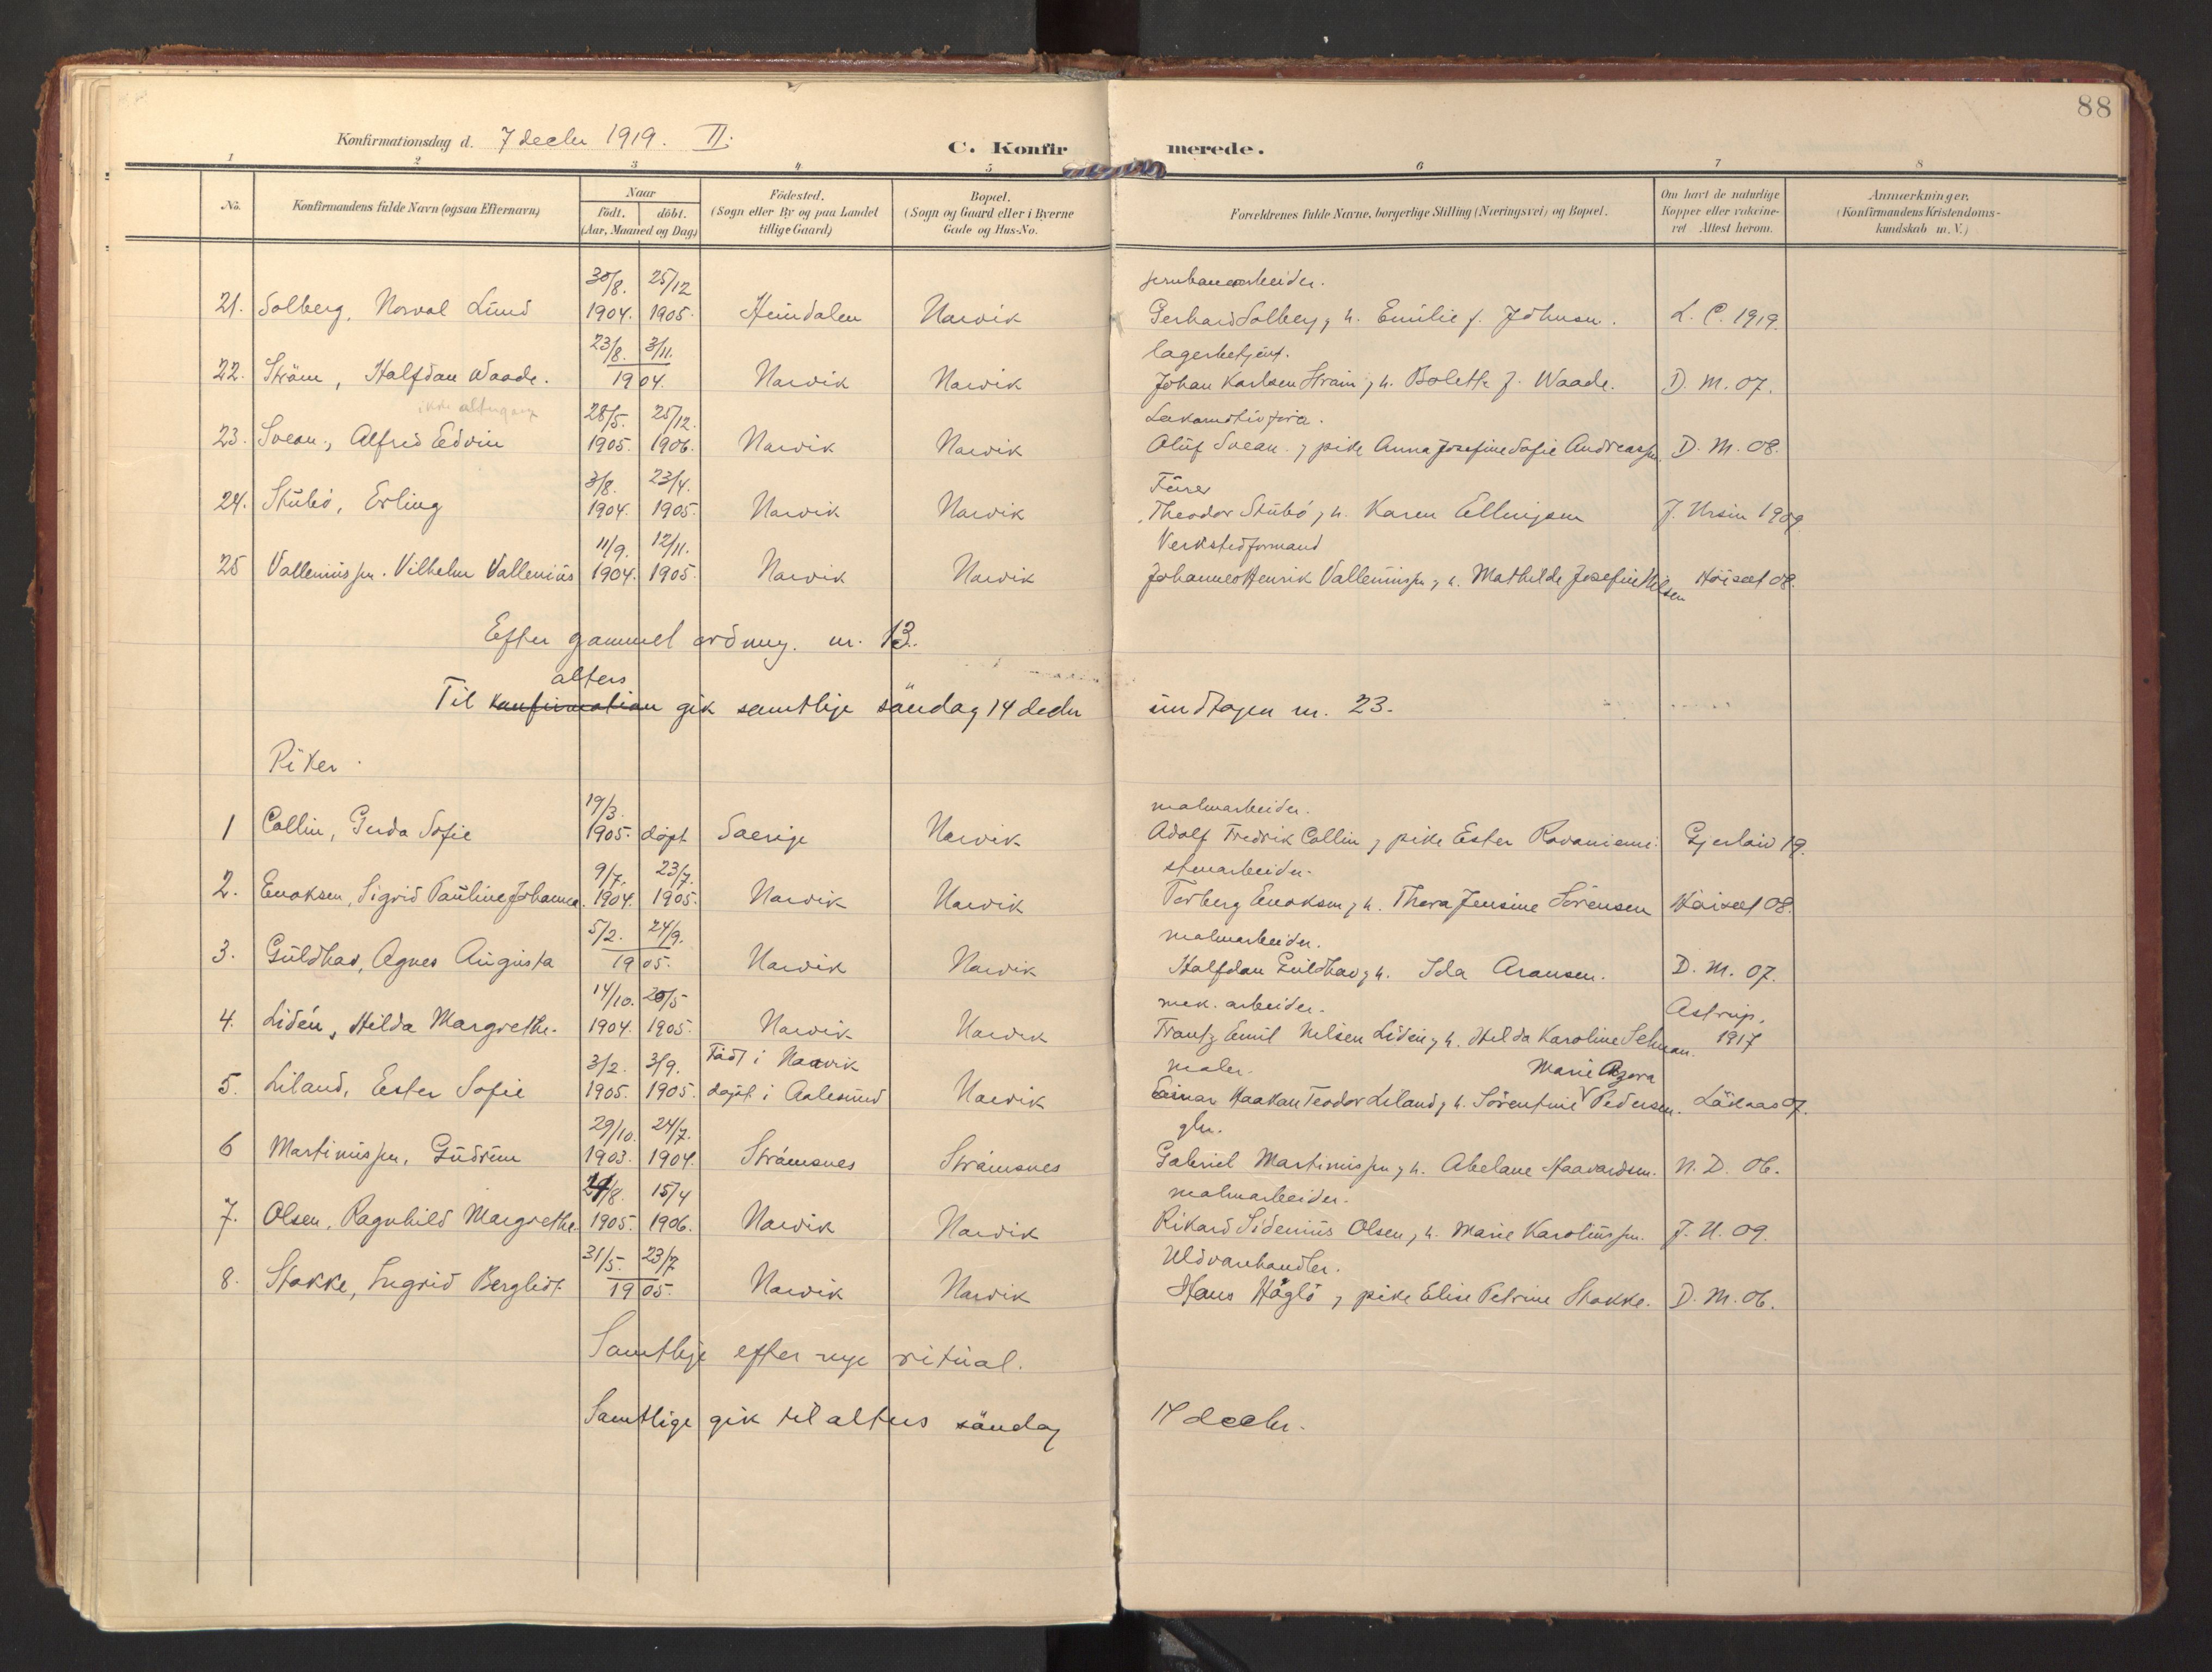 88
Konfirmationsdag d. 7 decbr 1919. II:
C. Konfirmerede.
1 2 3 4 5 6 7 8
No.
Konfirmandens fulde Navn (ogsaa Efternavn)
Naar
födt. döbt.
(Aar, Maaned og Dag)
Födested.
(Sogn eller By og paa Landet
tillige Gaard)
Bopæl.
(Sogn og Gaard eller i Byerne
Gade og Hus-No.
Forældrenes fulde Navne, borgerlige Stilling (Næringsvei) og Bopæl.
Om havt de naturlige
Kopper eller vakcine-
ret Attest herom.
Anmærkninger.
(Konfirmandens Kristendoms-
kundskab m. V.)
30/8. 25/12 jernbanearbeider.
21. Solberg, Norval Lund 1904. 1905. Narvik Gerhard Solberg, h. Emilie f. Johnsen. L. C. 1919.
23/8. 3/11. lagerbetjent.
22. Ström, Halfdan Waade. 1904. Narvik Narvik Johan Karlsen Ström, h. Bolette f. Waade. D. M. 07.
ikke altergang
28/5. 25/12. Lokomotivförer.
23. Svean, Alfred Edvin 1905. 1906. Narvik Narvik Oluf Svean, pike Anna Josefine Sofie Andreassen D. M. 08.
3/8. 23/4. Fürer
24. Stubö, Erling 1904. 1905. Narvik Narvik Theodor Stubö, h. Karen Ellingsen J. Ursin 1909
11/9. 12/11. Verkstedformand
25 Valleniussen. Vilhelm Vallenius 1904. 1905. Narvik Narvik Johannes Henrik Valleniussen, h. Mathilde Josefine Nilsen Höisæt 08.
Efter gammel ordning. nr. 13.
alters
Til konfirmation gik samtlige söndag 14 decbr undtagen nr. 23.
Piker.
19/3. malmarbeider.
1 Collin, Gerda Sofie 1905. döpt Sverige Narvik Adolf Fredrik Collin, pike Ester Rovaniemi. Gjerlöw 19.
9/7. 23/7. stenarbeider.
2. Enoksen, Sigrid Pauline Johanna. 1904. 1905. Narvik Narvik Torberg Enoksen, h. Thora Jensine Sörensen Höisæt 08.
5/2. 24/9. malmarbeider.
3. Guldhav, Agnes Augusta 1905. Narvik Narvik Halfdan Guldhav, h. Ida Aronsen. D. M. 07.
14/10. 20/5 mek. arbeider. Astrup,
4. Lidén, Hilda Margrethe. 1904. 1905. Narvik Narvik Frantz Emil Nilsen Lidén, h. Hilda Karoline Sehman. 1917
3/2. 3/9. Födt i Narvik maler. Marie Agora
5. Liland, Ester Sofie 1905. 1905. döpt i Aalesund Narvik Einar Haakan Teodor Liland, h. Sörentine V Pedersen. Löknas 07.
29/10. 24/7. gbr.
6 Martinussen, Gudrun 1903. 1904. Strömsnes Strömsnes Gabriel Martinussen, h. Abelane Haavardsen. N. D. 06.
24/8. 15/4 malmarbeider.
7. Olsen, Ragnhild Margrethe 1905. 1906. Narvik Narvik Rikard Sidenius Olsen, h. Marie Karoliussen. J. U. 09.
31/5. 23/7 Uldvarehandler.
8. Stokke, Ingrid Bergliot. 1905. Narvik Narvik Hans Höglö, pike Elise Petrine Stokke. D. M. 06.
Samtlige efter nye ritual.
Samtlige gik til alters söndag 14 decbr.